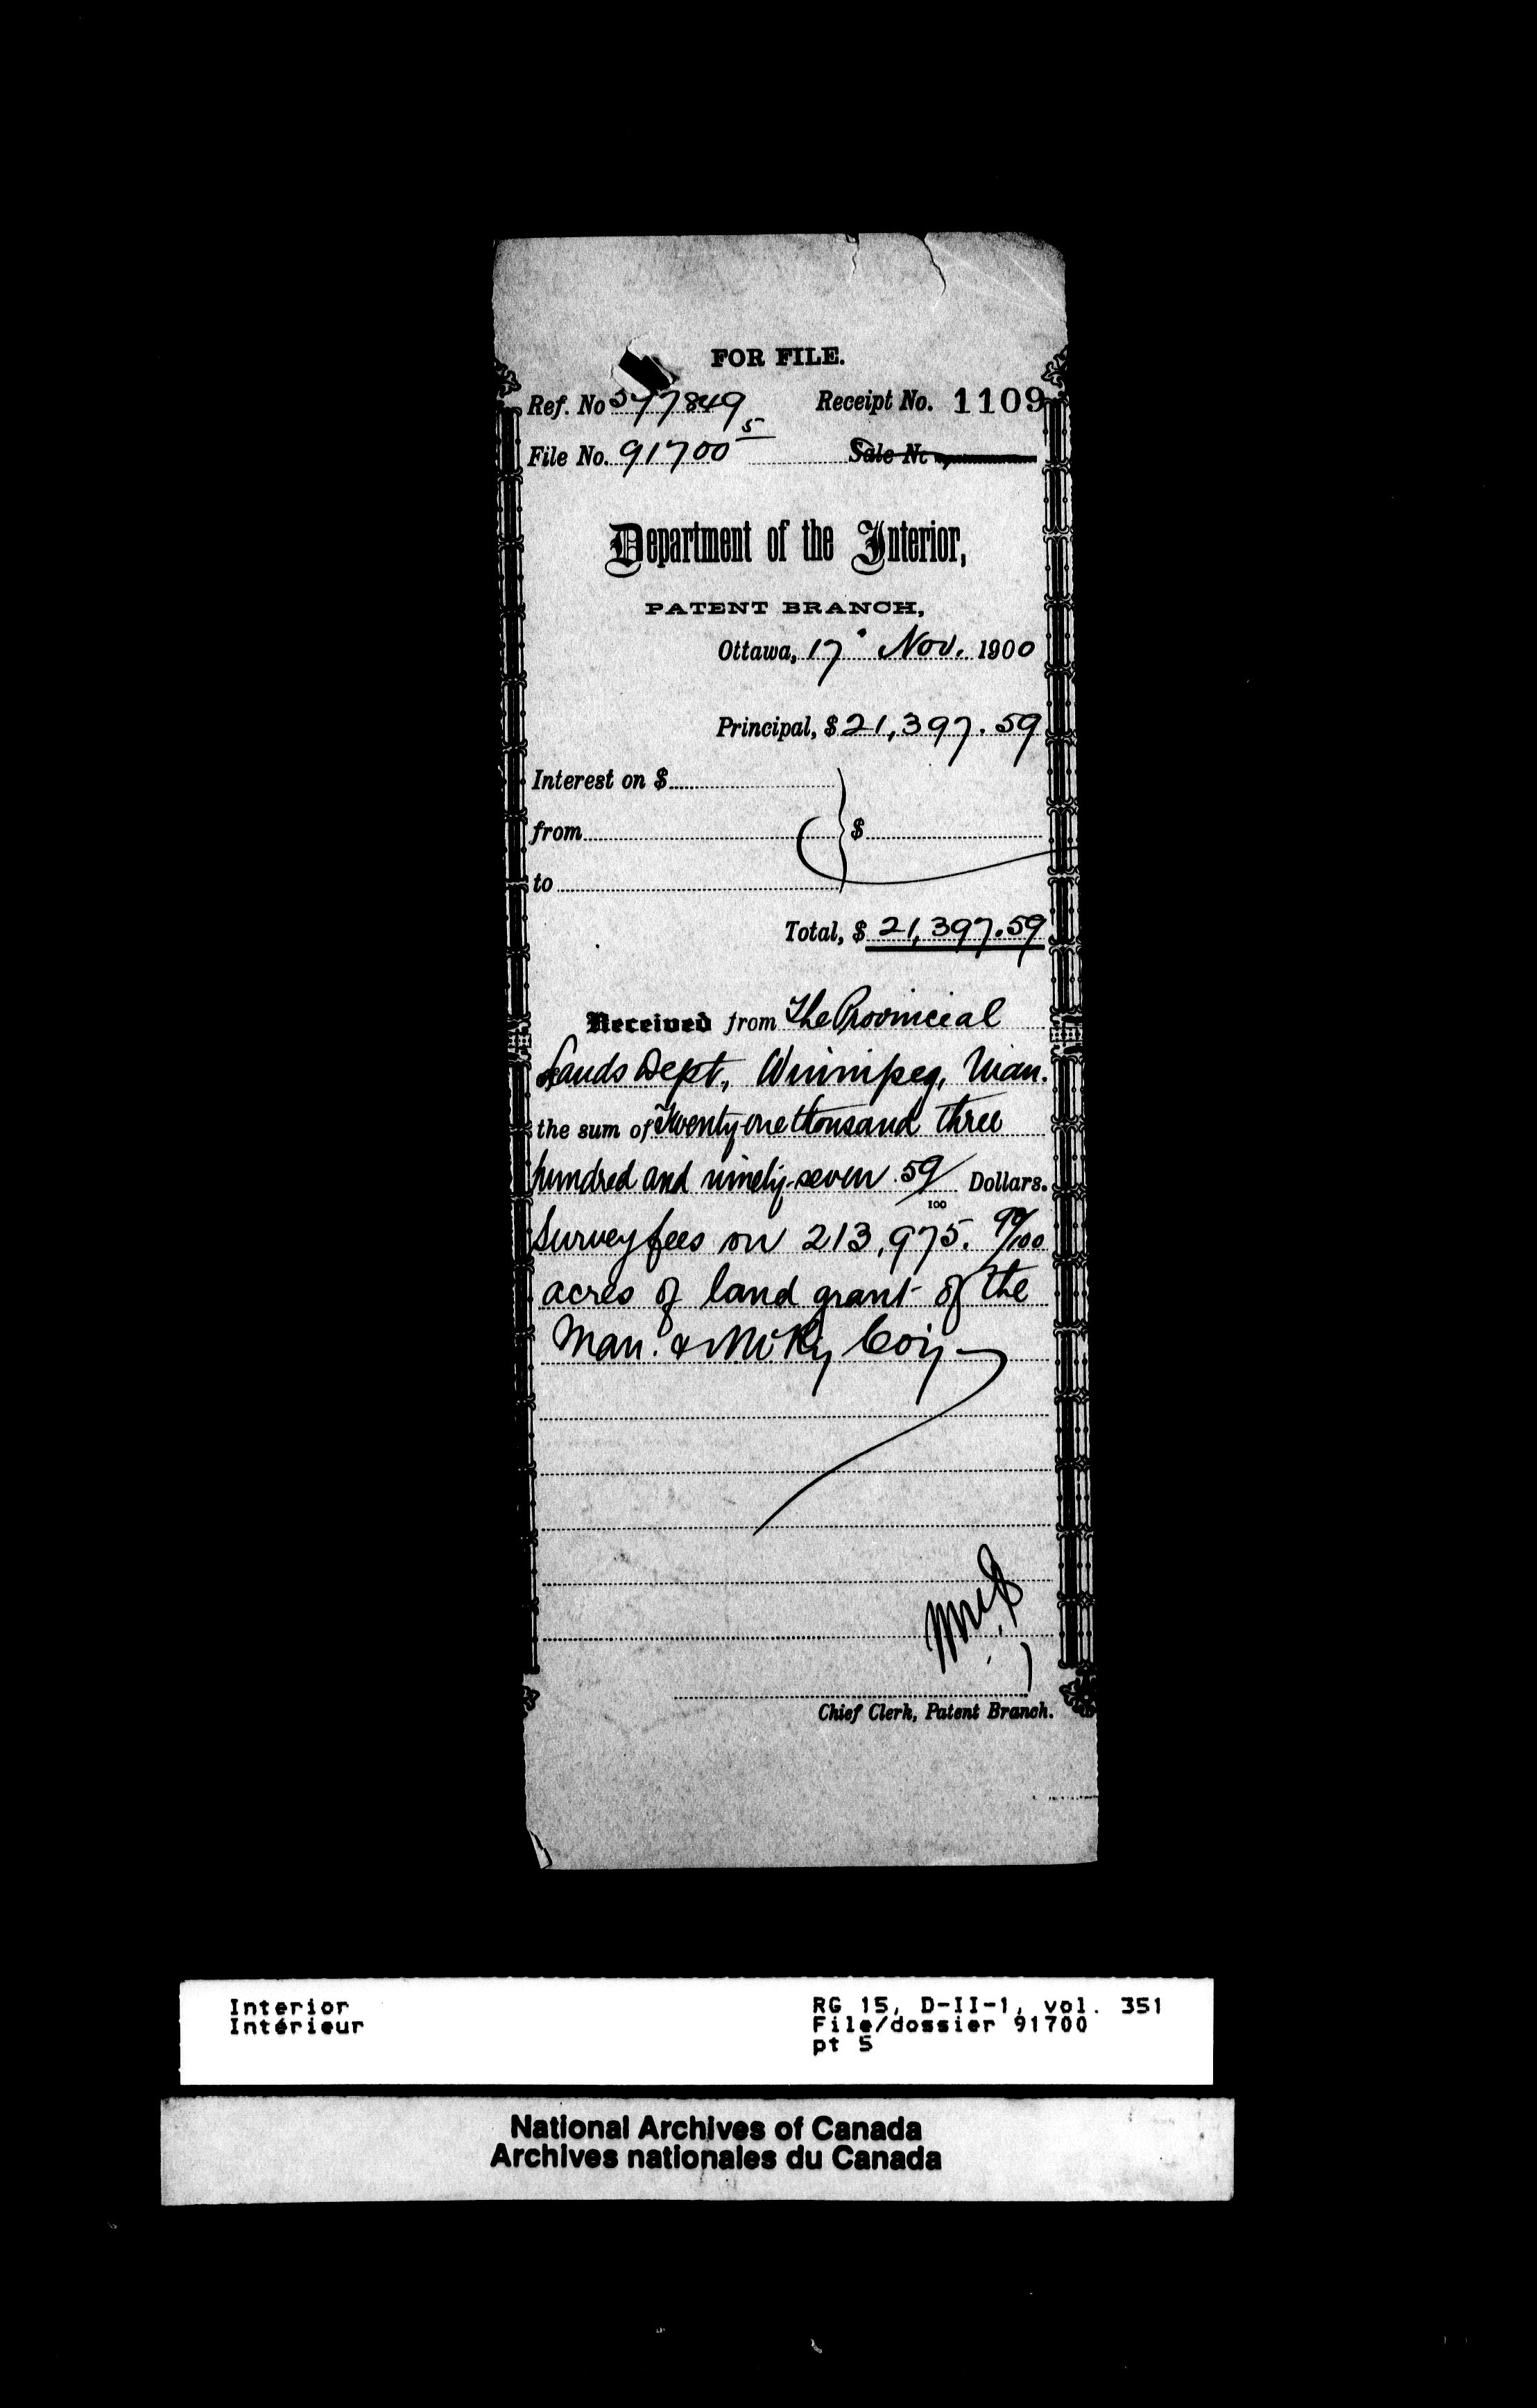 FOR FILE.
Ref. No 577849 Receipt No. 1109
File No. 91700 5 Sale No
Department of the Interior,
PATENT BRANCH,
Ottawa, 17 Nov. 1900
Principal, $ 21,397.59
Interest on $
from $
to
Total, $ 21,397.59
Received from The Provincial
Lands Dept., Winnipeg, Man.
the sum of Twenty-one thousand three
hundred and ninety-seven 59/100 Dollars.
Survey fees on 213,975. 90/100
acres of land grant of the
Man. & N.W. Ry Coy
Chief Clerk, Patent Branch.
Interior RG 15, D-II-1, vol. 351
Intérieur File/dossier 91700
pt 5
National Archives of Canada
Archives nationales du Canada